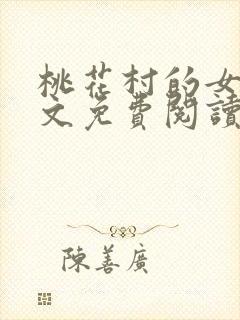 桃花村的女
文免費閱讀
陳善廣